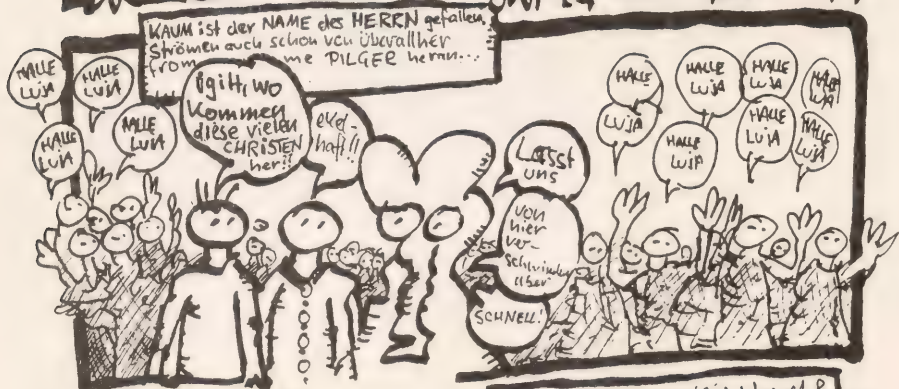 KAUM ist der NAME des HERRN gefallen,
Strömen auch schon von überallher
from me PILGER heran...
HALLE
LUJA
HALLE
LUJA
HALLE
LUJA
HALLE
LUJA
Igitt, wo
kommen
diese vielen
CHRISTEN
her!!
ekel-
haft!!
Lasst
uns
von
hier
ver-
schwinden
aber
SCHNELL!
HALLE
LUJA
HALLE
LUJA
HALLE
LUJA
HALLE
LUJA
HALLE
LUJA
HALLE
LUJA
HALLE
LUJA